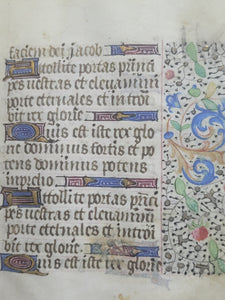 faciem dei jacob
Attollite portas princi
pes uestras et eleuamini
porte eternales et introi
bit rex glorie
Quis est iste rex glo
rie dominus fortis et po
tens dominus potens
in prelio
Attollite portas princi
pes uestras et eleuamini
porte eternales et introi
bit rex glorie
Quis est iste rex glorie